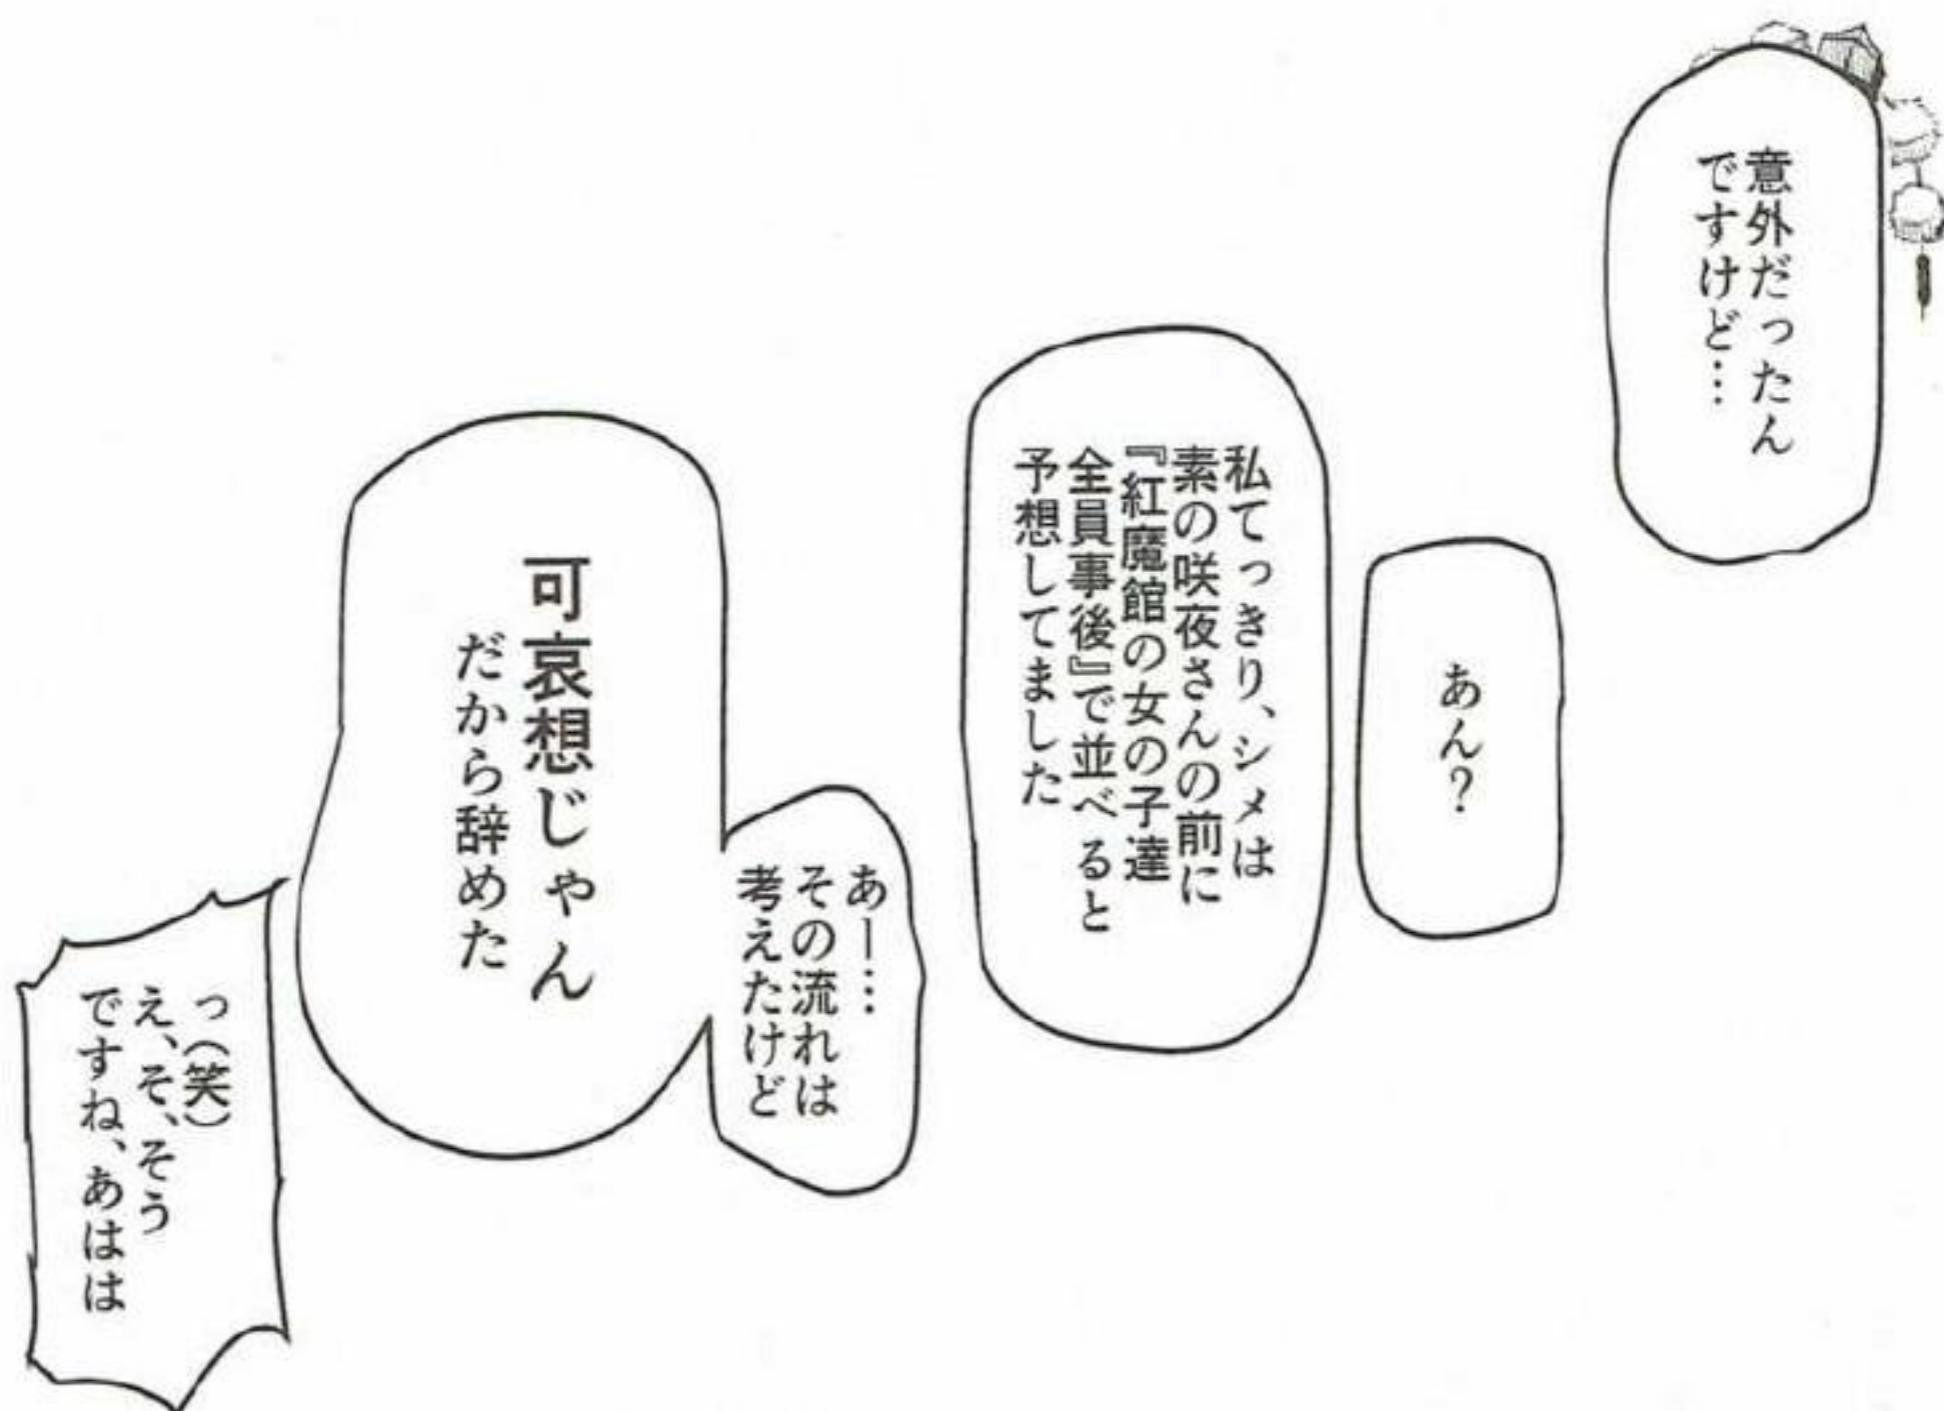 意外だったん
ですけど…
あん?
私てっきり、シメは
素の咲夜さんの前に
『紅魔館の女の子達
全員事後』で並べると
予想してました
あー…
その流れは
考えたけど
可哀想じゃん
だから辞めた
っ(笑)
え、そ、そう
ですね、あはは